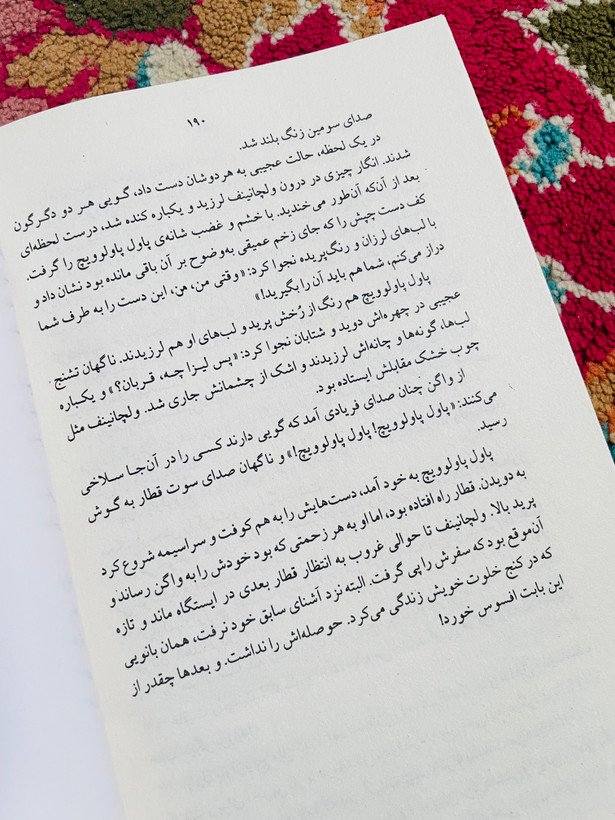 ۱۹۰
صدای سومین زنگ بلند شد.
در یک لحظه، حالت عجیبی به هر دوشان دست داد، گویی هر دو دگرگون
شدند. انگار چیزی در درون ولچانینف لرزید و یکباره کنده شد، درست لحظه‌ای
بعد از آن‌که آن‌طور می‌خندید. با خشم و غضب شانه‌ی پاول پاولوویچ را گرفت.
کف دست چپش را که جای زخم عمیقی به‌وضوح بر آن باقی مانده بود نشان داد و
با لب‌های لرزان و رنگ‌پریده نجوا کرد: «وقتی من، من، این دست را به طرف شما
دراز می‌کنم، شما هم باید آن را بگیرید!»
پاول پاولوویچ هم رنگ از رُخش پرید و لب‌های او هم لرزیدند. ناگهان تشنج
عجیبی در چهره‌اش دوید و شتابان نجوا کرد: «پس لیزا چه، قربان؟» و یکباره
لب‌ها، گونه‌ها و چانه‌اش لرزیدند و اشک از چشمانش جاری شد. ولچانینف مثل
چوب خشک مقابلش ایستاده بود.
از واگن چنان صدای فریادی آمد که گویی دارند کسی را در آن‌جا سلاخی
می‌کنند: «پاول پاولوویچ! پاول پاولوویچ!» و ناگهان صدای سوت قطار به گوش
رسید.
پاول پاولوویچ به خود آمد، دست‌هایش را به هم کوفت و سراسیمه شروع کرد
به دویدن. قطار راه افتاده بود، اما او به هر زحمتی که بود خودش را به واگن رساند و
پرید بالا. ولچانینف تا حوالی غروب به انتظار قطار بعدی در ایستگاه ماند و تازه
آن‌موقع بود که سفرش را پی گرفت. البته نزد آشنای سابق خود نرفت، همان بانویی
که در کنج خلوت خویش زندگی می‌کرد. حوصله‌اش را نداشت. و بعدها چقدر از
این بابت افسوس خورد!